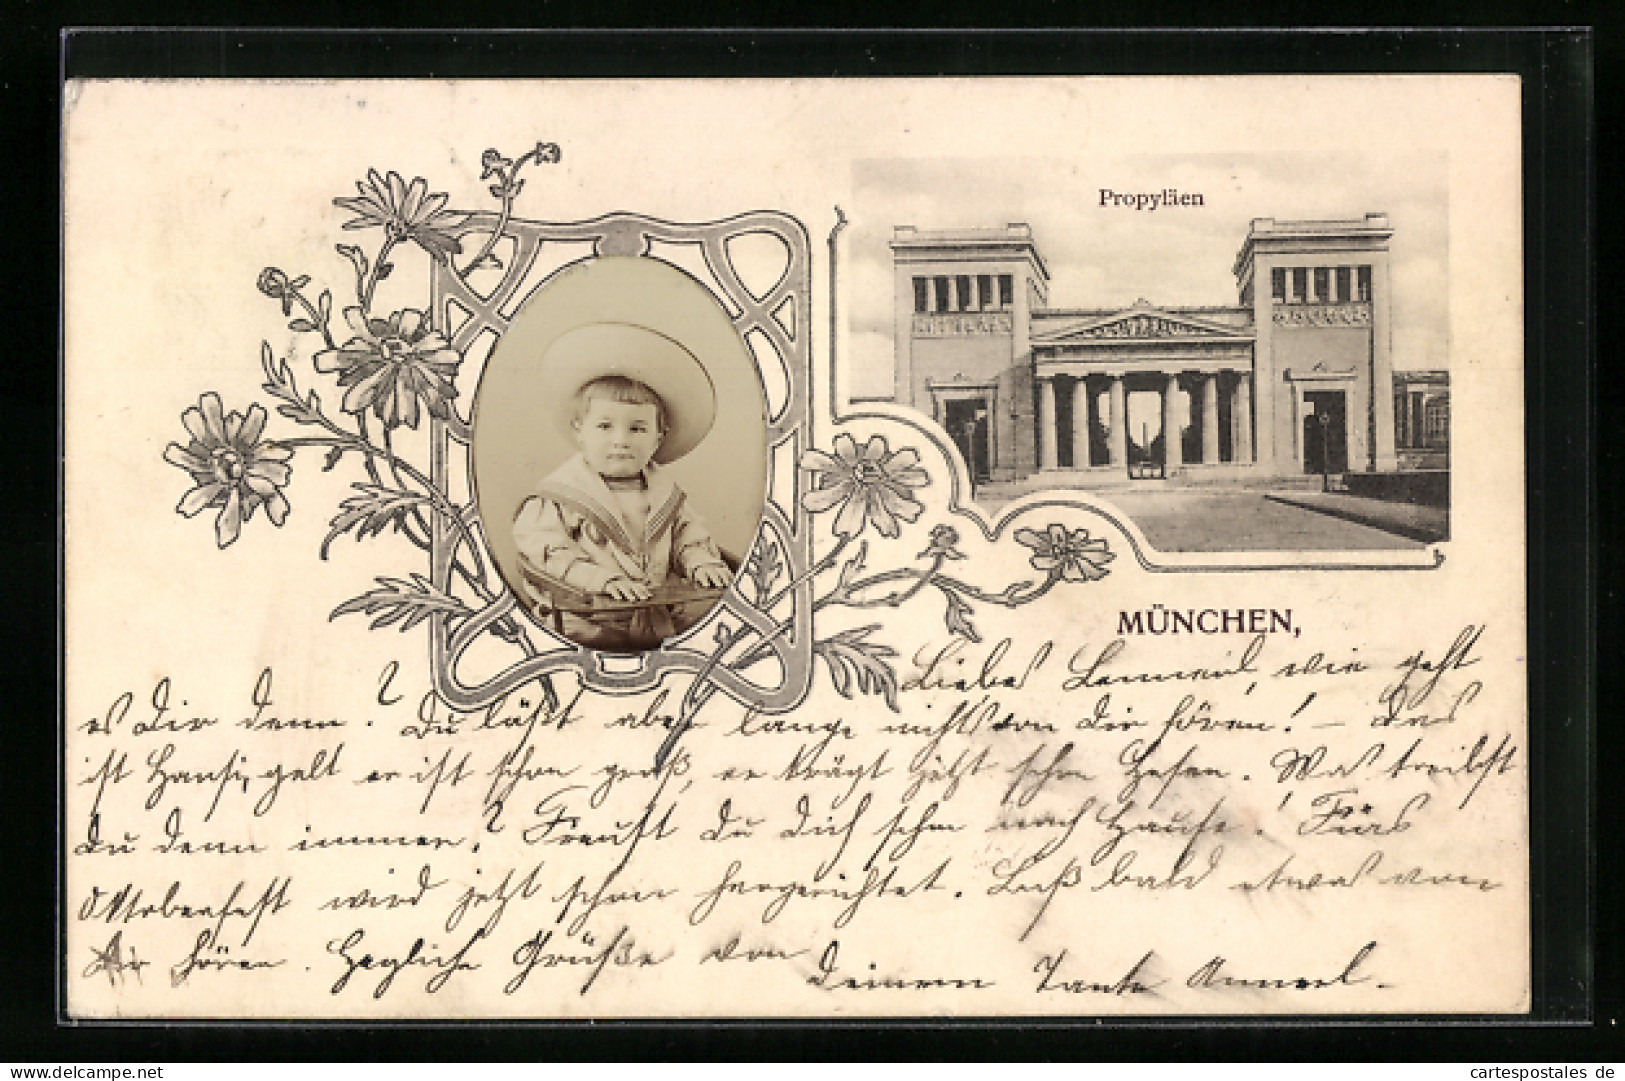 Propyläen
MÜNCHEN,
Liebes wie geht
es Dir denn? Du läßt aber lange nichts von Dir hören! – Das
ist Hansi, gelt er ist schon groß, er trägt jetzt schon Hosen. Was treibst
Du denn immer? Freust Du Dich schon nach Hause! Fürs
Oktoberfest wird jetzt schon hergerichtet. Laß bald etwas von
Dir hören. Herzliche Grüße von
Deiner Tante
delcampe.net
cartespostales de